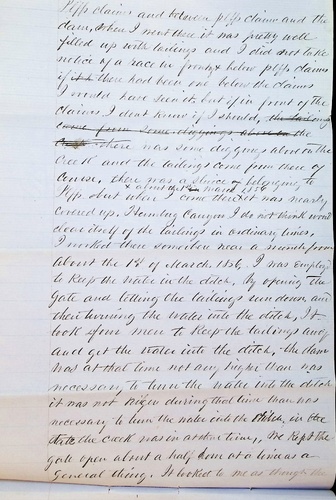 Plffs claims and between plffs claims and the
dam, when I went there it was pretty well
filled up with tailings and I did not take
notice of a race in front & below plffs claims
if it is there had been one below the claims
I would have seen it, but if in front of the
claims I dont know if I should, the tailings
come from some diggings above on the
Creek there was some diggings above on the
Creek and the tailings come from there of
course, there was a sluice belonging to
Plffs but when I come there it was nearly
x about the 1st march 1856
covered up. Humbug Canyon I do not think would
clear itself of the tailings in ordinary times,
I worked there somewhere near a month from
about the 1st of March 1856. I was employed
to keep the water in the ditch, by opening the
gate and letting the tailings run down and
then turning the water into the ditch, It
took four men to keep the tailings away
and get the water into the ditch, the dam
was at that time not any higher than was
necessary to turn the water into the ditch
it was not higher during that time than was
necessary to turn the water into the ditch, in the
state the creek was in at that time, We kept the
gate open about a half hour at a time as a
general thing. It looked to me as though the